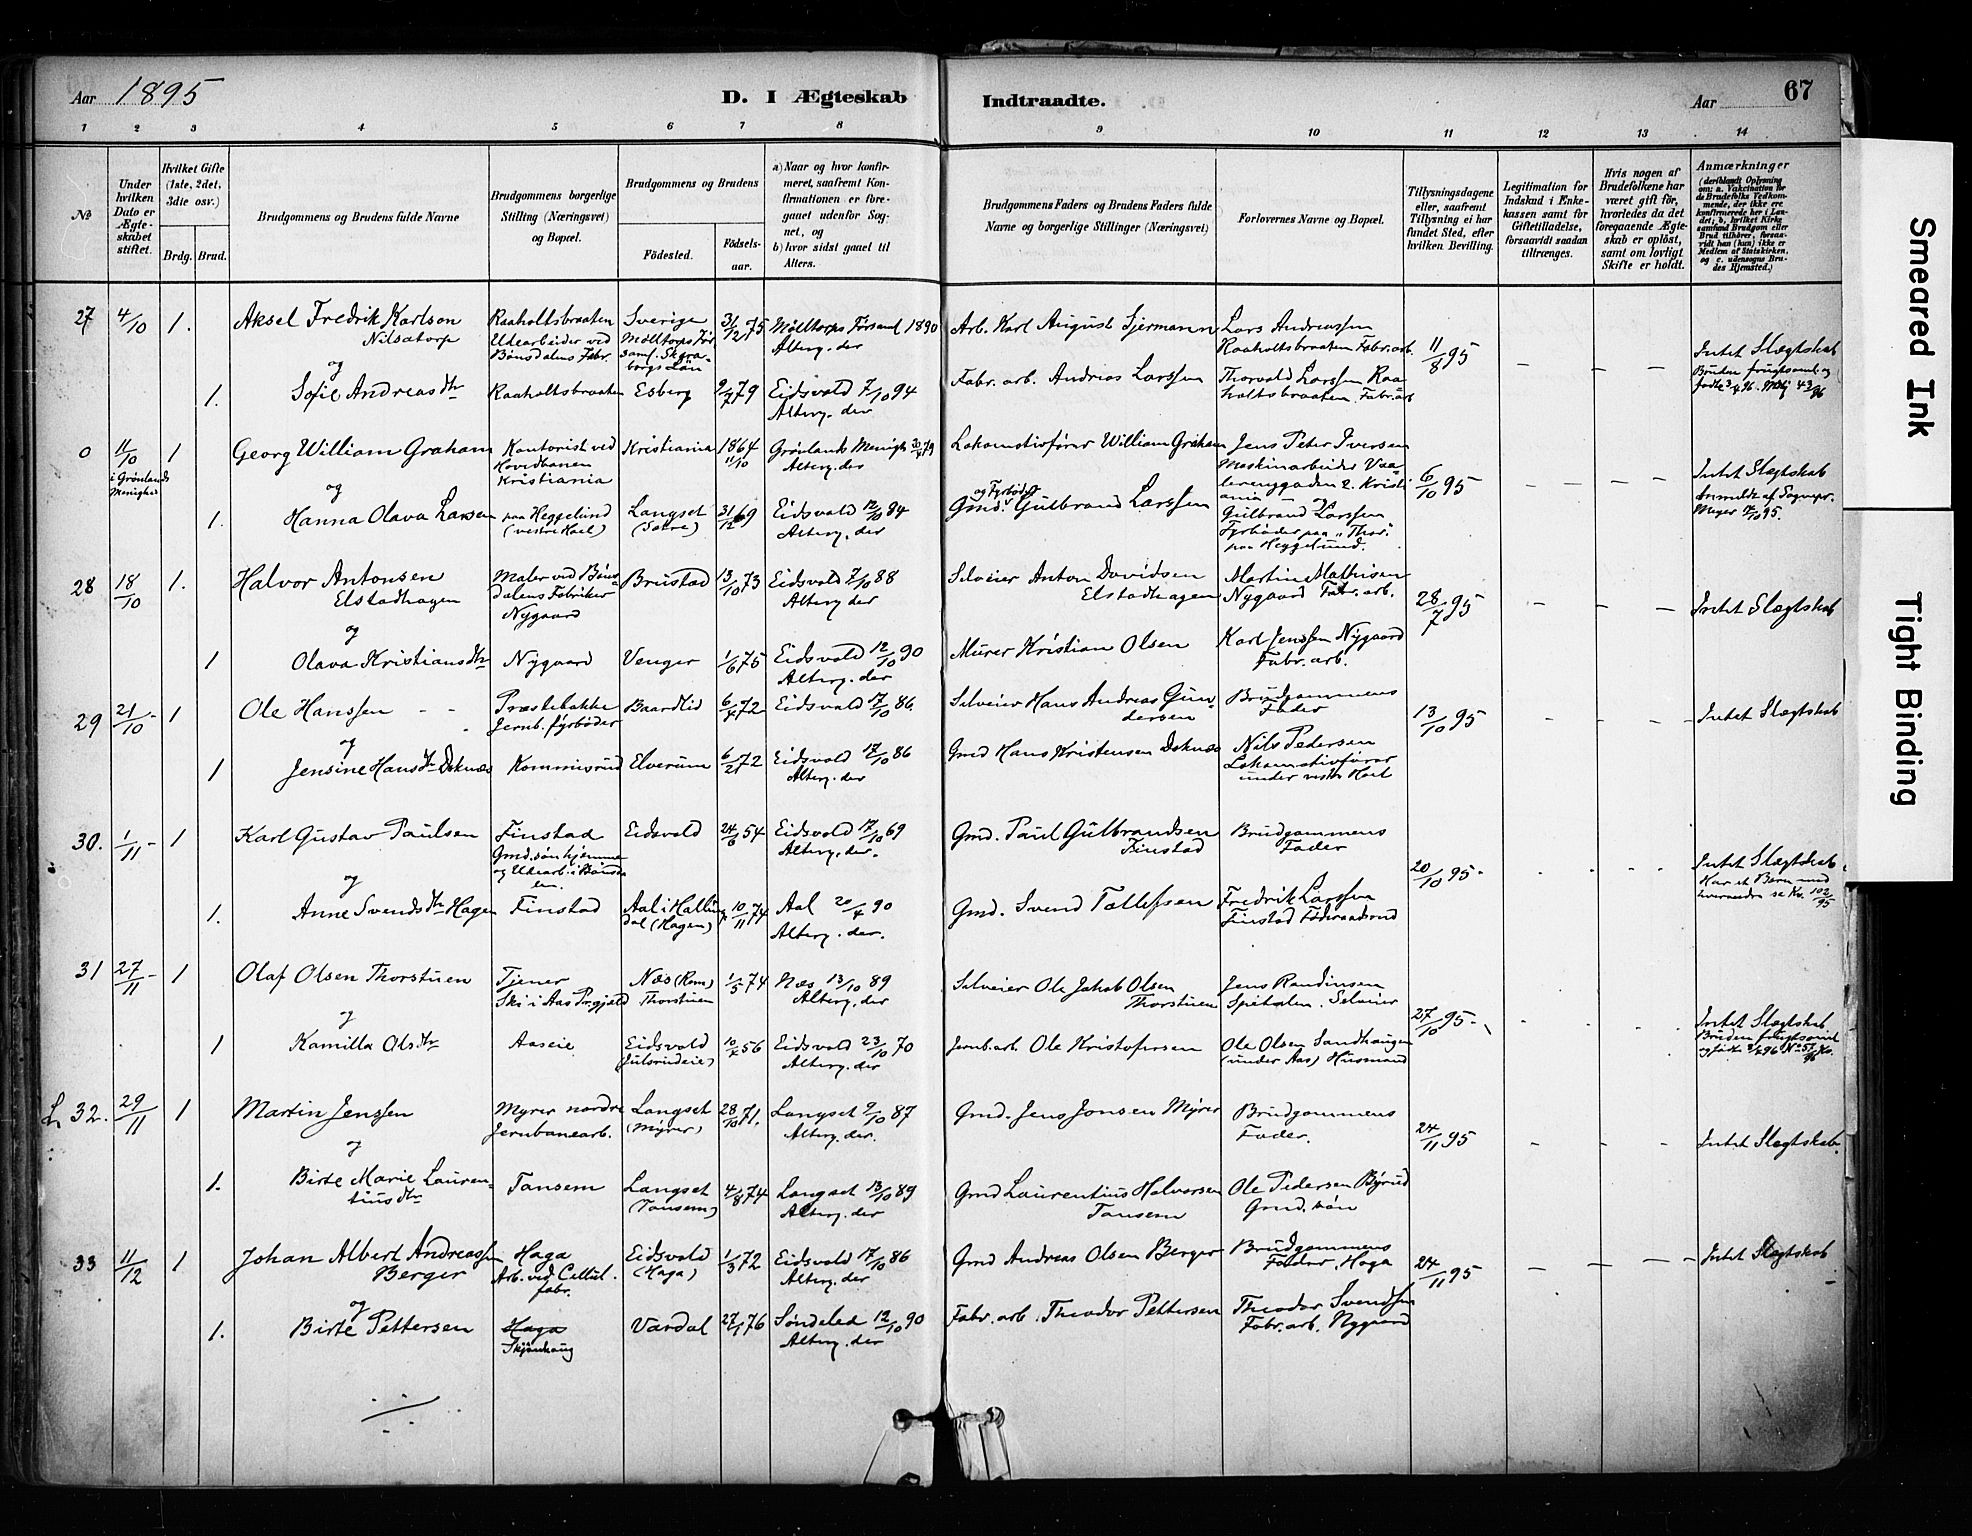 Aar 1895
D. I Ægteskab
Indtraadte.
Aar
67
1 2 3 4 5 6 7 8 9 10 11 12 13 14
№
Under hvilken Dato er Ægteskabet stiftet.
Hvilket Gifte (1ste, 2det, 3die osv.)
Brdg. Brud.
Brudgommens og Brudens fulde Navne
Brudgommens borgerlige Stilling (Næringsvei) og Bopæl.
Brudgommens og Brudens
Fødested.
Fødsels-aar.
a) Naar og hvor konfirmeret, saafremt Konfirmationen er foregaaet udenfor Sognet, og
b) hvor sidst gaaet til Alters.
Brudgommens Faders og Brudens Faders fulde Navne og borgerlige Stillinger (Næringsvei)
Forlovernes Navne og Bopæl.
Tillysningsdagene eller, saafremt Tillysning ei har fundet Sted, efter hvilken Bevilling.
Legitimation for Indskud i Enkekassen samt for Giftetilladelse, forsaavidt saadan tiltrænges.
Hvis nogen af Brudefolkene har været gift før, hvorledes da det foregaaende Ægteskab er opløst, samt om lovligt Skifte er holdt.
Anmærkninger
(deriblandt Oplysning om: a. Vakcination for de Brudefolks Vedkommende, der ikke ere konfirmerede her i Landet; b. hvilket Kirkesamfund Brudgom eller Brud tilhører, forsaavidt han (hun) ikke er Medlem af Statskirken, og c. udensogns Brudes Hjemsted.)
27 4/10 1. Aksel Fredrik Karlson Nilsatorp Raaholtsbraaten Udearbeider ved Bönsdalens Fabr. Sverige Mölltorps Församl. Skaraborgs Län 31/12 75 Mölltorps Församl 1890 Alterg. der Arb. Karl August Stjermann Lars Andreassen Raaholtsbraaten Fabr.arb. 11/8 95 Intet Slægtskab
og
1. Sofie Andreasdtr Raaholtsbraaten Esberg 9/7 79 Eidsvold 7/10 94 Alterg. der Fabr. arb. Andreas Larssen Thorvald Larssen Raaholtsbraaten Fabr.arb Bruden frugtsom. og
0 11/10 i Grønlands Menighed 1 Georg William Graham Kontorist ved Hovedbanen Kristiania Kristiania 1864 11/10 Grønlands Menigh 79 Alterg. der Lokomotivfører William Graham Jens Peter Iversen Maskinarbeider Vaalerenggaden 2. Kristiania 6/10 95 Intet Slægtskab
og
1. Hanna Olava Larsen paa Heggelund (vestre Hael) Langset (Sætre) 31/12 69 Eidsvold 12/10 84 Alterg. der Gmd. og Fyrböder Gulbrand Larssen og Gulbrand Larssen Fyrböder paa "Thor" paa Heggelund. Anmeldt af Sognepr. Meyer 17/10 95.
28 18/10 1. Halvor Antonsen Elstadhagen Maler ved Bönsdalens Fabriker Nygaard Brustad 13/10 73 Eidsvold 7/10 88 Alterg der Selveier Anton Davidsen Elstadhagen Martin Mathisen Nygaard Fabr. arb. 28/7 95 Intet Slægtskab
og
1 Olava Kristiansdtr Nygaard Venger 1/6 75 Eidsvold 12/10 90 Alterg. der Murer Kristian Olsen Karl Jenssen Nygaard Fabr. arb.
29 21/10 1 Ole Hanssen Præstebakke Jernb. fyrböder Baardlid 6/4 72 Eidsvold 17/10 86. Selveier Hans Andreas Gundersen Brudgommens Fader 13/10 95 Intet Slægtskab
og
1 Jensine Hansdtr Doknæs Kommisrud Elverum 6/21 72 Eidsvold 17/10 86 Alterg. der Gmd Hans Kristensen Doknæs Nils Pedersen Lokomotivfører under vestre Hael
30. 1/11 1 Karl Gustav Paulsen Finstad Gmd.sön hjemme og Udearb. i Bönsdalen. Eidsvold 24/6 54 Eidsvold 17/10 69 Alterg. der. Gmd. Paul Gulbrandsen Finstad Brudgommens Fader 20/10 95 Intet Slægtskab
og
1. Anne Svendsdtr Hagen Finstad Aal i Hallingdal (Hagen) 10/11 74 Aal 20/4 90 Alterg. der. Gmd. Svend Tollefsen Fredrik Larssen Finstad Föderaadsmd Har et Barn med hverandre se Kv. 102/95
31 27/11 1 Olaf Olsen Thorstuen Tjener Ski i Aas Pr.gjeld Næs (Rom) Thorstuen 1/5 74 Næs 13/10 89 Alterg. der Selveier Ole Jakob Olsen Thorstuen Jens Randinsen Spetalen. Selveier 27/10 95 Intet Slægtskab.
og
1 Kamilla Olsdtr Aaseie Eidsvold (Julsrudeie) 10/4 56 Eidsvold 23/10 70 Alterg. der Jernb.arb. Ole Kristofersen Ole Olsen Sandhaugen (under Aas) Husmand Bruden frugtsom
L 32. 29/11 1 Martin Jenssen Myrer nordre Jernbanearb. Langset (Myrer) 28/10 71. Langset 9/10 87 Alterg. der. Gmd. Jens Jonsen Myrer Brudgommens Fader. 24/11 95 Intet Slægtskab.
og
1. Birte Marie Laurentiusdtr Tansem Langset (Tansem) 4/8 74 Langset 13/10 89 Alterg. der Gmd Laurentius Halvorsen Tansem Ole Pedersen Byrud Gmd. sön
33 11/12 1 Johan Albert Andreassen Berger Haga Arb. ved Cellul. fabr. Eidsvold (Haga) 1/3 72 Eidsvold 17/10 86 Alterg. der Gmd Andreas Olsen Berger Brudgommens Fader, Haga 24/11 95 Intet Slægtskab
og
1. Birte Pettersen Haga Skjönhaug Vardal 27/1 76 Söndeled 12/10 90 Alterg. der Fabr. arb. Theodor Pettersen Theodor Svendsen Fabr. arb. Nygaard
Smeared Ink
Tight Binding